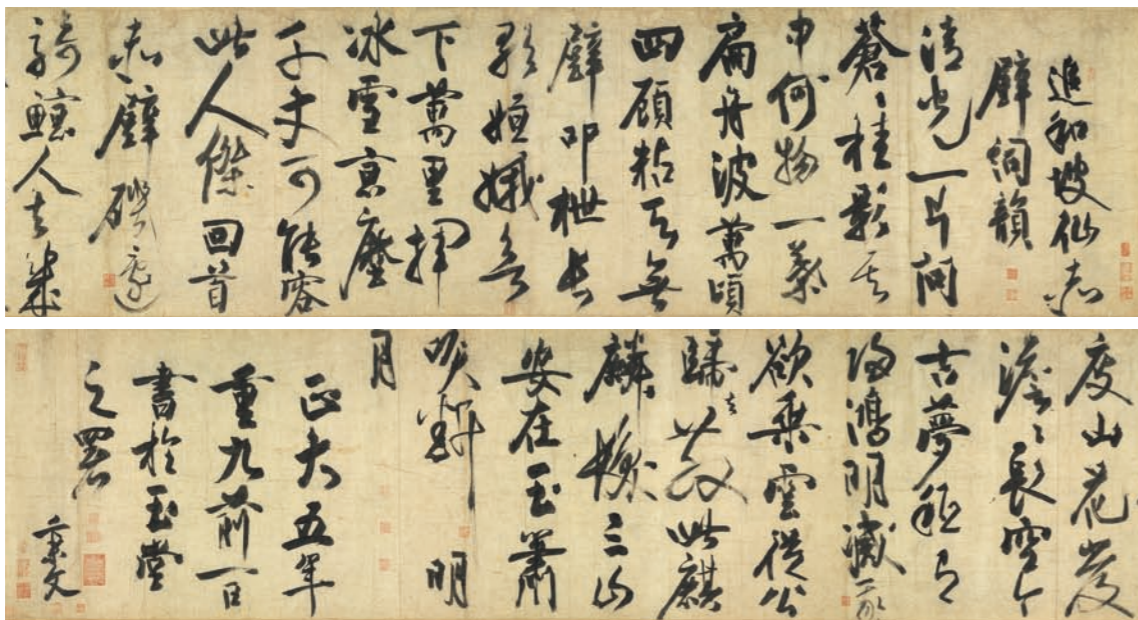 追和坡仙赤
壁詞韻
清光一片問
蒼〻桂影其
中何物一葉
扁舟波萬頃
四顧粘天無
壁叩枻長
歌姮娥欲
下萬里揮
冰雪京塵
千丈可能容
此人傑回首
赤壁磯邊
騎鯨人去幾
度山花發
澹〻長空今
古夢秪有
歸鴻明滅我
欲乘雲從公
歸去散此麒
麟髮三山
安在玉簫
吹斷明
月
正大五年
重九前一日
書於玉堂
之署
秉文